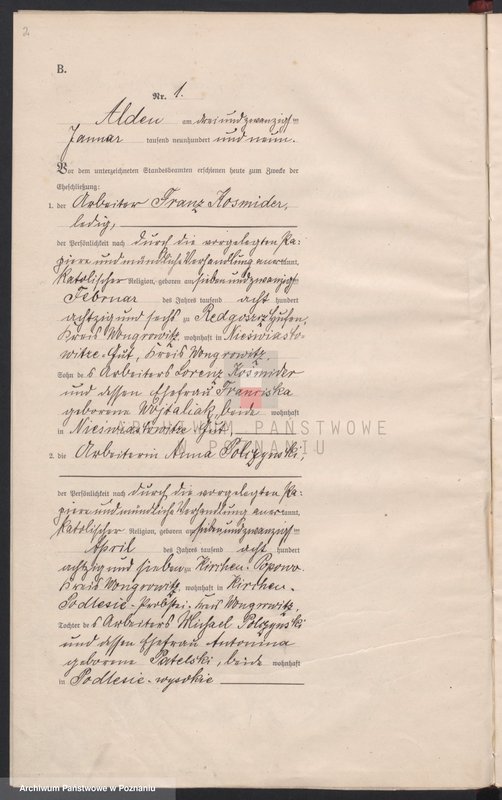 2
B.
Nr. 1.
Alden am dreiundzwanzigsten
Januar tausend neunhundert und neun.
Vor dem unterzeichneten Standesbeamten erschienen heute zum Zwecke der
Eheschließung:
1. der Arbeiter Franz Kosmider,
ledig,
der Persönlichkeit nach durch die vorgelegten Pa-
piere und mündliche Verhandlung anerkannt,
katolischer Religion, geboren am siebenundzwanzigsten
Februar des Jahres tausend acht hundert
achtzig und sechs zu Redgoszcz Huben,
Kreis Wongrowitz, wohnhaft in Nieswiasto-
witze-Gut, Kreis Wongrowitz,
Sohn des Arbeiters Lorenz Kosmider
und dessen Ehefrau Franciska
geborene Wojtaliak, beide wohnhaft
in Nieswiastowitze Gut,
2. die Arbeiterin Anna
der Persönlichkeit nach durch die vorgelegten Pa-
piere und mündliche Verhandlung anerkannt,
katolischer Religion, geboren am siebenundzwanzigsten
April des Jahres tausend acht hundert
achtzig und sieben zu Kirchen-Popowo
Kreis Wongrowitz, wohnhaft in Kirchen-
Podlesie-Probstei-Kreis Wongrowitz,
Tochter des Arbeiters Michael
und dessen Ehefrau Antonina
geborene Patelski, beide wohnhaft
in Podlesie-wysokie
ARCHIWUM PAŃSTWOWE
W POZNANIU
Archiwum Państwowe w Poznaniu